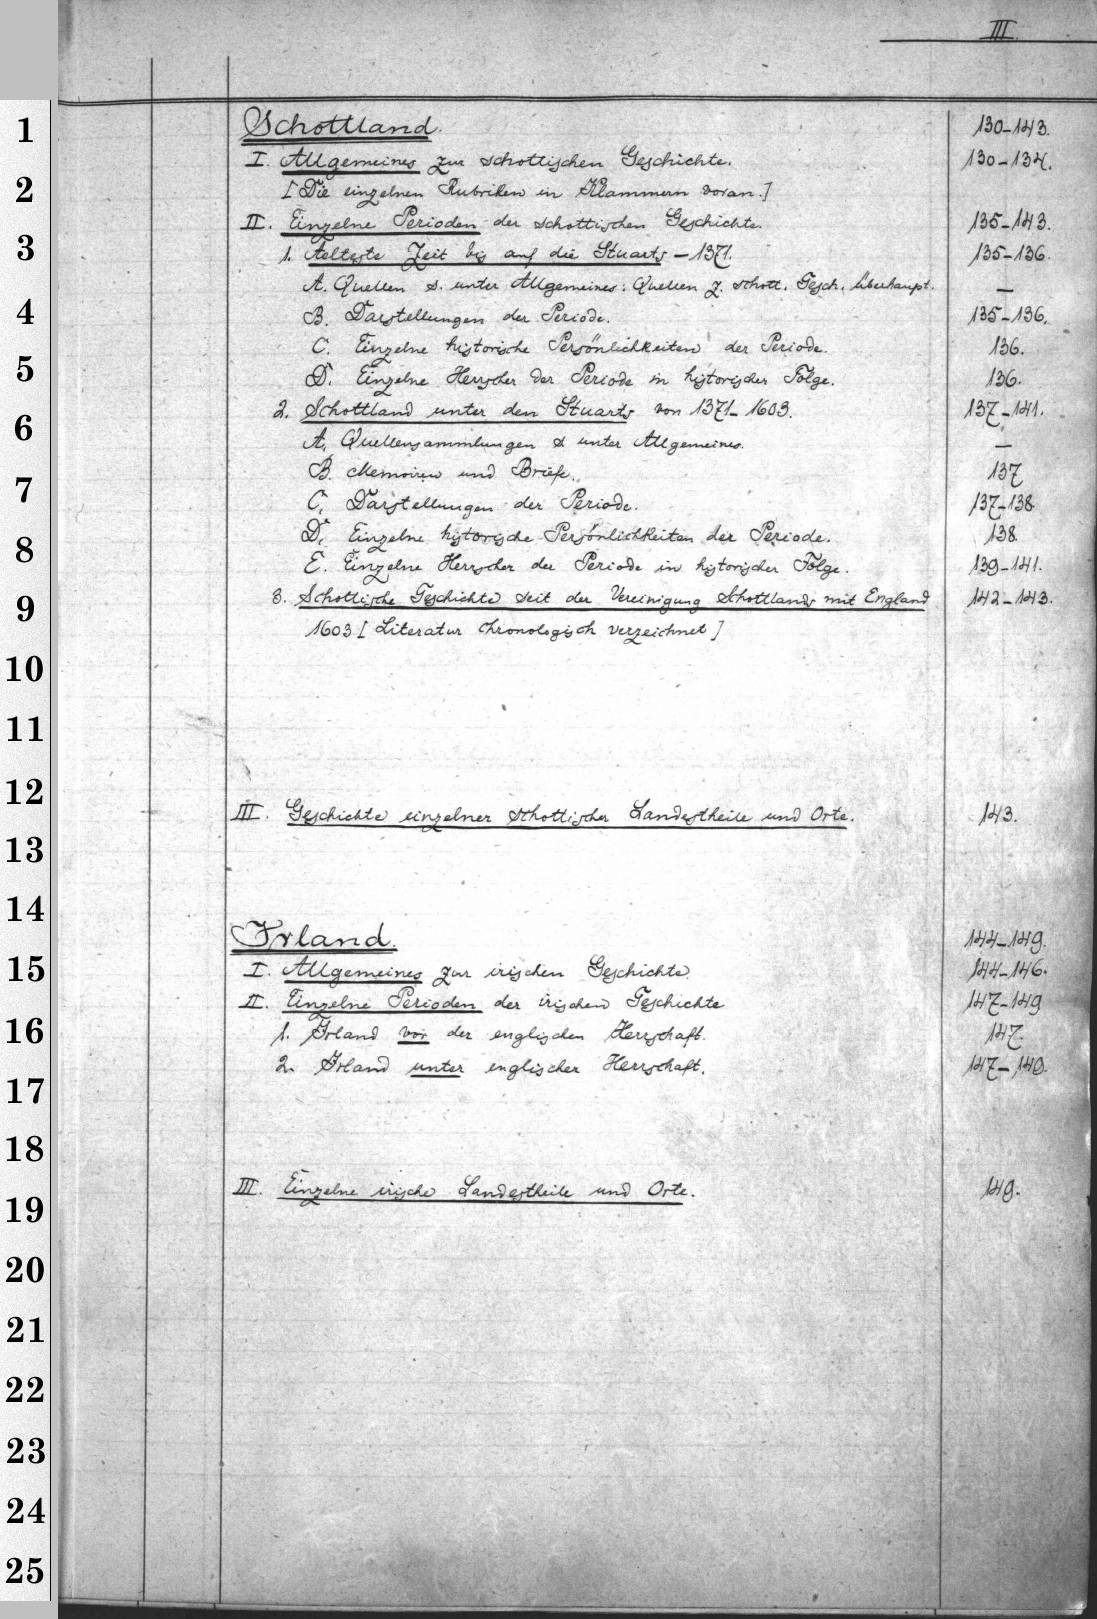 III.
Schottland. 130-143.
I. Allgemeines zur schottischen Geschichte. 130-134.
[Die einzelnen Rubriken in Klammern voran.]
II. Einzelne Perioden der schottischen Geschichte. 135-143.
1. Aelteste Zeit bis auf die Stuarts - 1371. 135-136.
A. Quellen s. unter Allgemeines: Quellen z. schott. Gesch. überhaupt. —
B. Darstellungen der Periode. 135-136.
C. Einzelne historische Persönlichkeiten der Periode. 136.
D. Einzelne Herrscher der Periode in historischer Folge. 136.
2. Schottland unter den Stuarts von 1371-1603. 137-141.
A. Quellensammlungen s unter Allgemeines. —
B. Memoiren und Briefe. 137
C. Darstellungen der Periode. 137-138
D. Einzelne historische Persönlichkeiten der Periode. 138
E. Einzelne Herrscher der Periode in historischer Folge. 139-141.
3. Schottische Geschichte seit der Vereinigung Schottlands mit England 142-143.
1603 [Literatur chronologisch verzeichnet]
III. Geschichte einzelner schottischer Landestheile und Orte. 143.
Irland. 144-149.
I. Allgemeines zur irischen Geschichte 144-146.
II. Einzelne Perioden der irischen Geschichte 147-149
1. Irland vor der englischen Herrschaft. 147.
2. Irland unter englischer Herrschaft. 147-149.
III. Einzelne irische Landestheile und Orte. 149.
1
2
3
4
5
6
7
8
9
10
11
12
13
14
15
16
17
18
19
20
21
22
23
24
25